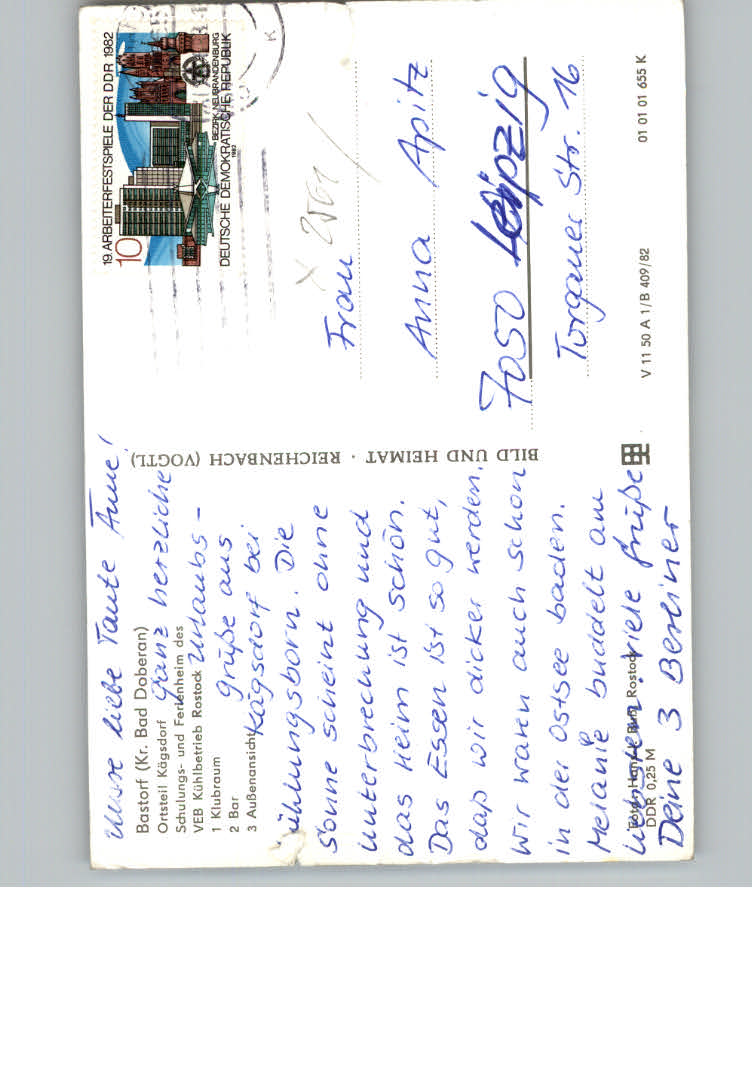 Unsere liebe Tante Anne!
Bastorf (Kr. Bad Doberan)
Ortsteil Kägsdorf
Schulungs- und Ferienheim des
VEB Kühlbetrieb Rostock
1 Klubraum
2 Bar
3 Außenansicht
Ganz herzliche
Urlaubs-
grüße aus
Kägsdorf bei
ühlungsborn. Die
Sonne scheint ohne
Unterbrechung und
das Heim ist schön.
Das Essen ist so gut,
daß wir dicker werden.
Wir waren auch schon
in der Ostsee baden.
Melanie buddelt am
liebsten. Viele Grüße
Deine 3 Berliner
Rostock
DDR 0,25 M
BILD UND HEIMAT · REICHENBACH (VOGTL)
19. ARBEITERFESTSPIELE DER DDR 1982
10
BEZIRK NEUBRANDENBURG
DEUTSCHE DEMOKRATISCHE REPUBLIK
1982
K
Frau
Anna Apitz
7050 Leipzig
Torgauer Str. 16
V 11 50 A 1/B 409/82
01 01 01 655 K